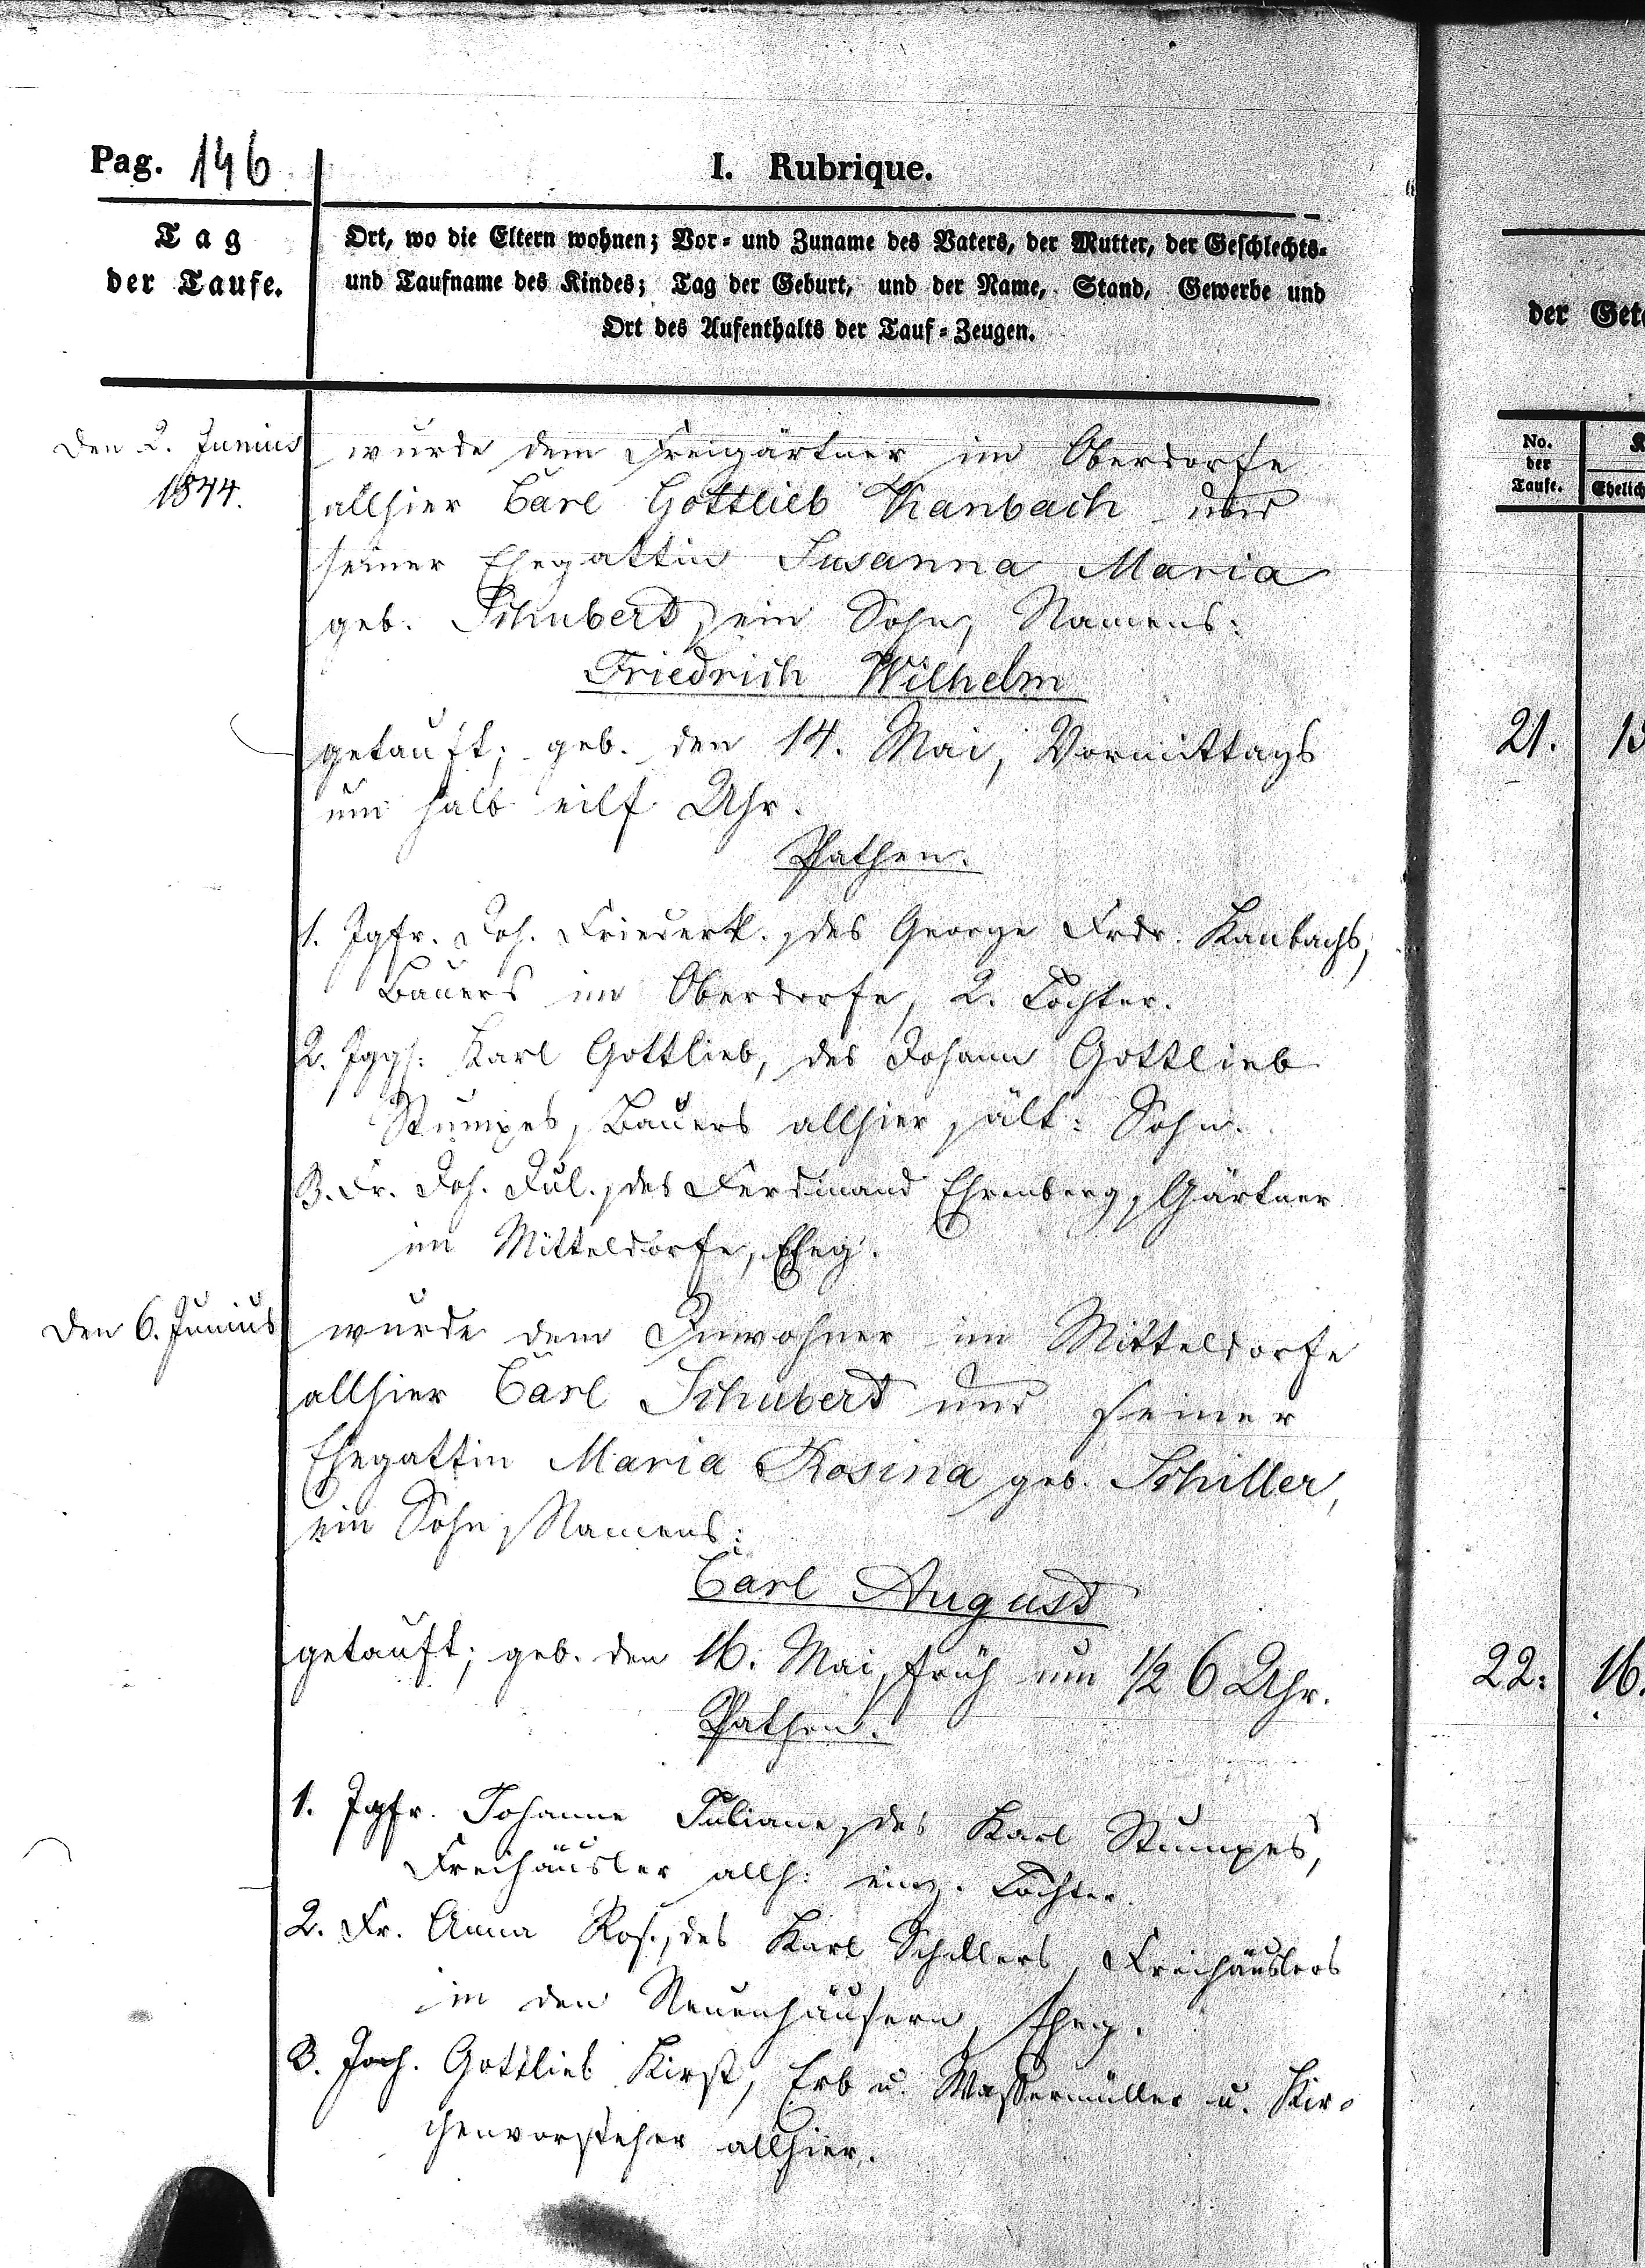 Pag. 146
I. Rubrique.
Tag
der Taufe.
Ort, wo die Eltern wohnen; Vor- und Zuname des Vaters, der Mutter, der Geschlechts-
und Taufname des Kindes; Tag der Geburt, und der Name, Stand, Gewerbe und
Ort des Aufenthalts der Tauf-Zeugen.
Den 2. Junius
1844.
wurde dem Freigärtner im Oberdorfe
allhier Carl Gottlieb Kanbach und
seiner Ehegattin Susanna Maria
geb. Schubert, ein Sohn, Namens:
Friedrich Wilhelm
getauft; geb. den 14. Mai, Vormittags
um halb eilf Uhr.
Pathen.
1. Jgfr. Joh. Friederk., des George Frdr. Kanbachs,
Bauers im Oberdorfe, 2. Tochter.
2. Jggs: Karl Gottlieb, des Johann Gottlieb
Stumpes, Bauers allhier, ält: Sohn.
3. Fr. Joh. Jul., des Ferdinand Ehrenberg, Gärtner
im Mitteldorfe, Eheg.
Den 6. Junius
wurde dem Inwohner im Mitteldorfe
allhier Carl Schubert und seiner
Ehegattin Maria Rosina geb. Schiller,
ein Sohn, Namens:
Carl August
getauft; geb. den 16. Mai, früh um 1/2 6 Uhr.
Pathen.
1. Jgfr. Johanne Juliane, des Karl Stumpes,
Freihäusler allh: einz. Tochter.
2. Fr. Anna Ros., des Karl Schillers, Freihäuslers
in den Neuenhäusern, Eheg.
3. Gottlieb Kirst, Erb u. Wassermüller u. Kir-
chenvorsteher allhier.
der Get
No.
der
Taufe.
Ehelich
21.
22.
16.